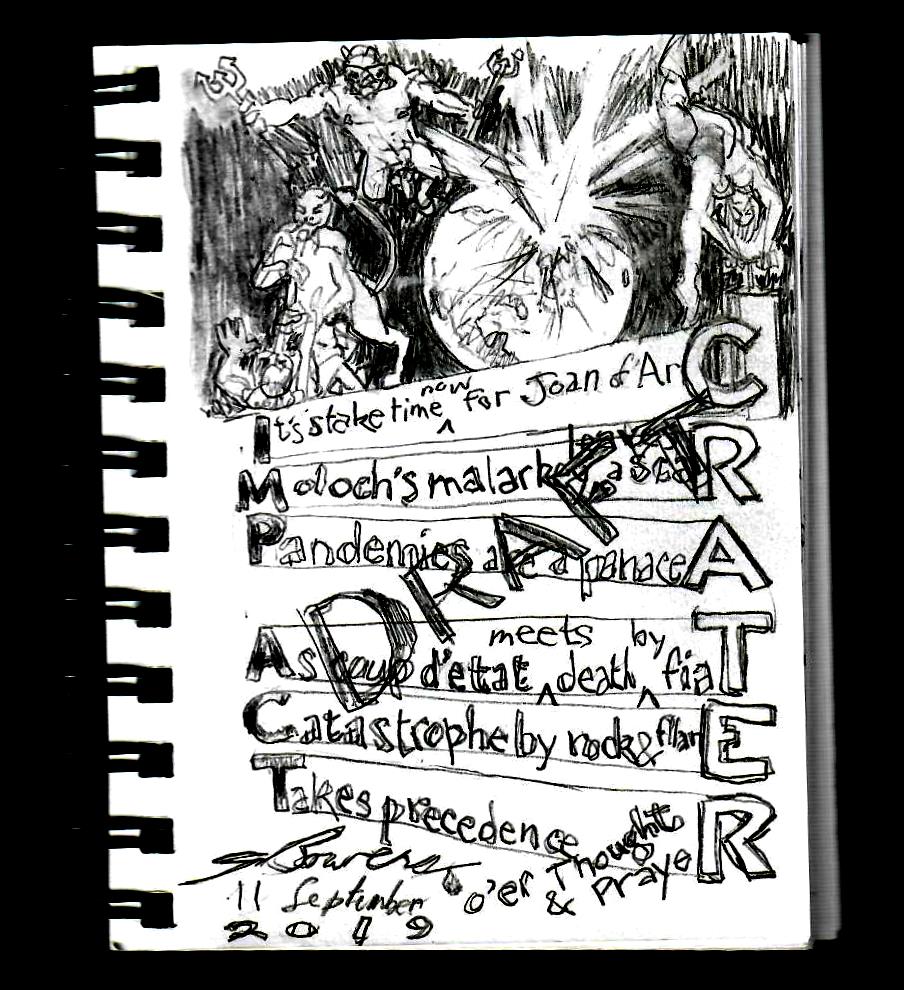 It's stake time now for Joan of ArC
Moloch's malarkey leaves a scaR
Pandemics are a panaceA
As coup d'ettat meets death by fiaT
Catastrophe by rock & flarE
Takes precedence o'er Thought & PrayeR
DRAFT
11 September
2019